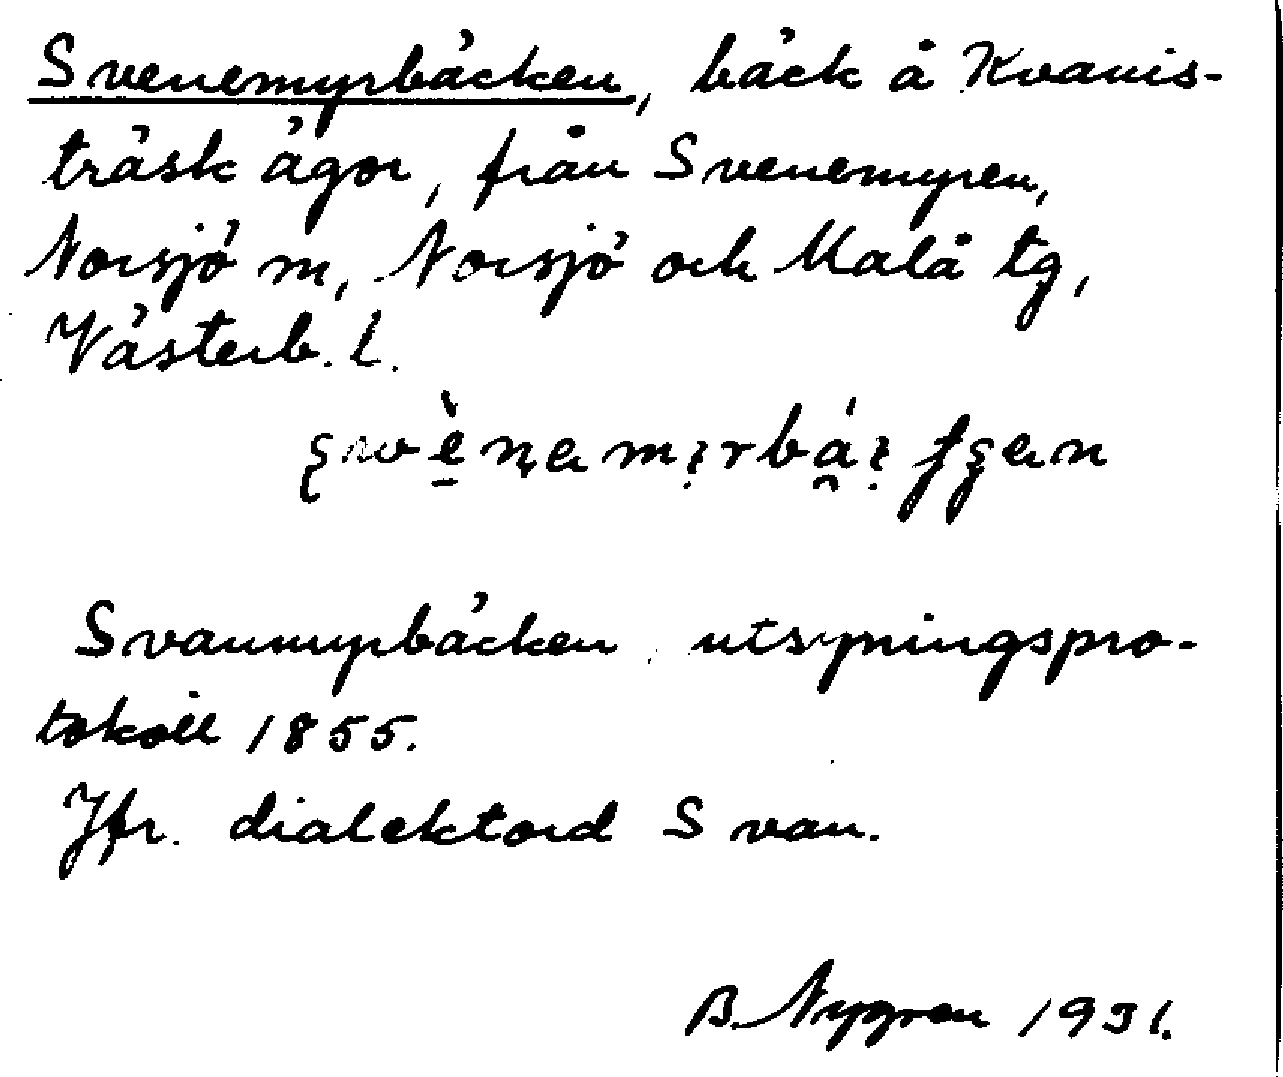 Svenemyrbäcken, bäck å Kvavis-
träsk ägor, från Svenemyren,
Norsjö sn, Norsjö och Malå tg,
Västerb. l.
Svanmyrbäcken utsyningspro-
tokoll 1855.
Jfr. dialektord Svan.
B. Nygren 1931.